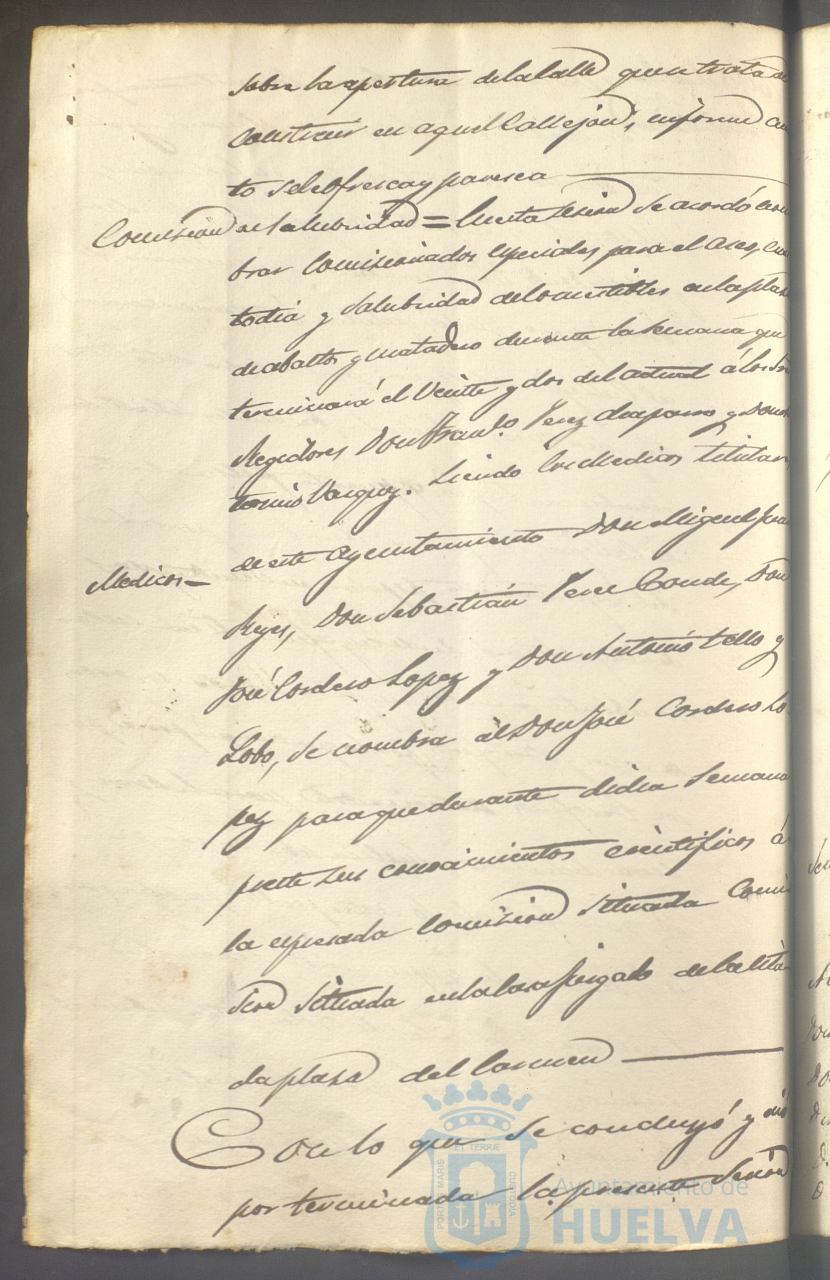 sobre la apertura de la Calle que se trata de
construir en aquel Callejon, informe cu
to se le ofresca y paresca
Comision de Salubridad = En esta sesion se acordó nom
brar Comisionados especiales para el aseo, cus
todia y salubridad de comestibles en la plasa
de abastos y matadero durante la semana que
terminará el Veinte y dos del actual á los Sres
Regidores Don Franco. Perez y Don
tonio Vazquez. Siendo los Medicos titulares
de este Ayuntamiento Don Miguel
Medicos
Reyes, Don Sebastián Perez Conde, Don
José Cordero Lopez y Don Antonio Tello y
Lobo, se nombra al Don José Cordero Lo
pez para que durante dicha semana
preste sus conocimientos cientificos á
la espresada Comision situada Comi
sion situada en la Casa de la cita
da plasa del Carmen
Con lo que se concluyó y dió
por terminada la presente Sesion
PORTUS MARIS ET TERRÆ CUSTODIA
Ayuntamiento de
HUELVA